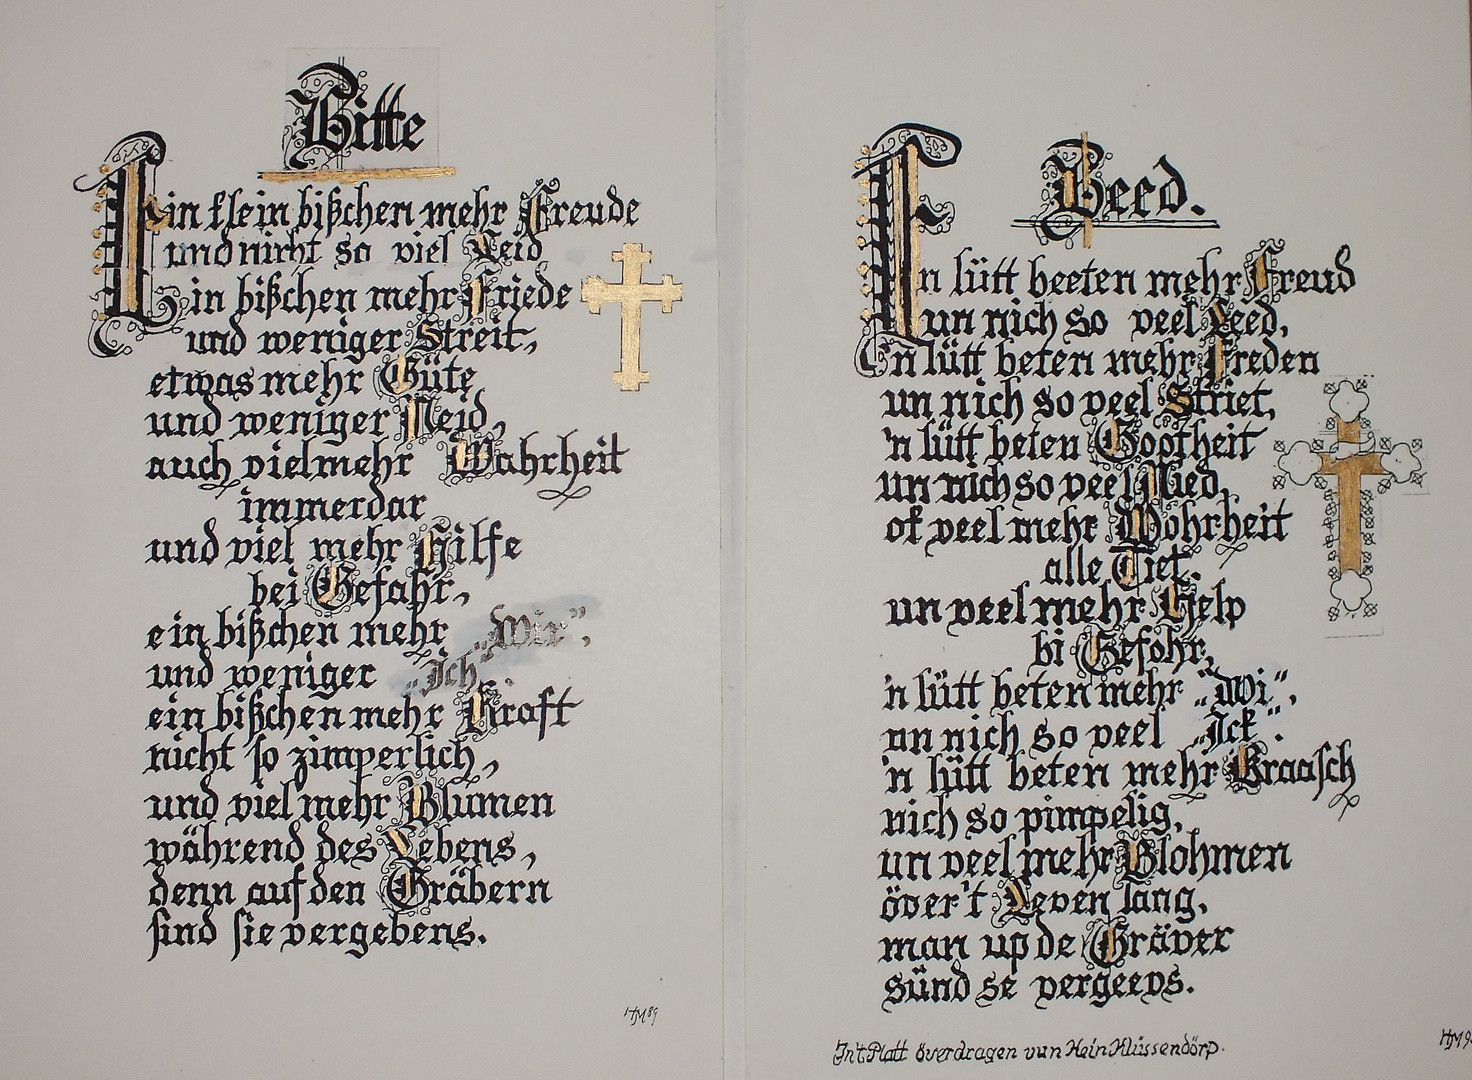 Bitte
Ein klein bißchen mehr Freude
und nicht so viel Leid
Ein bißchen mehr Friede
und weniger Streit,
etwas mehr Güte
und weniger Neid,
auch vielmehr Wahrheit
immerdar
und viel mehr Hilfe
bei Gefahr,
ein bißchen mehr „Wir“,
und weniger „Ich“.
ein bißchen mehr Kraft
nicht so zimperlich,
und viel mehr Blumen
während des Lebens,
denn auf den Gräbern
sind sie vergebens.
HM 89
Beed.
En lütt beeten mehr Freud
un nich so veel Leed,
'n lütt beten mehr Freden
un nich so veel Striet,
'n lütt beten Gootheit
un nich so veel Nied,
ok veel mehr Wohrheit
alle Tiet.
un veel mehr Help
bi Gefohr,
'n lütt beten mehr „Wi“,
un nich so veel „Ick“.
'n lütt beten mehr Kraasch
nich so pimpelig,
un veel mehr Blohmen
över't Leven lang,
man up de Gräver
sünd se vergeevs.
In't Platt överdragen vun Hein Klüssendörp.